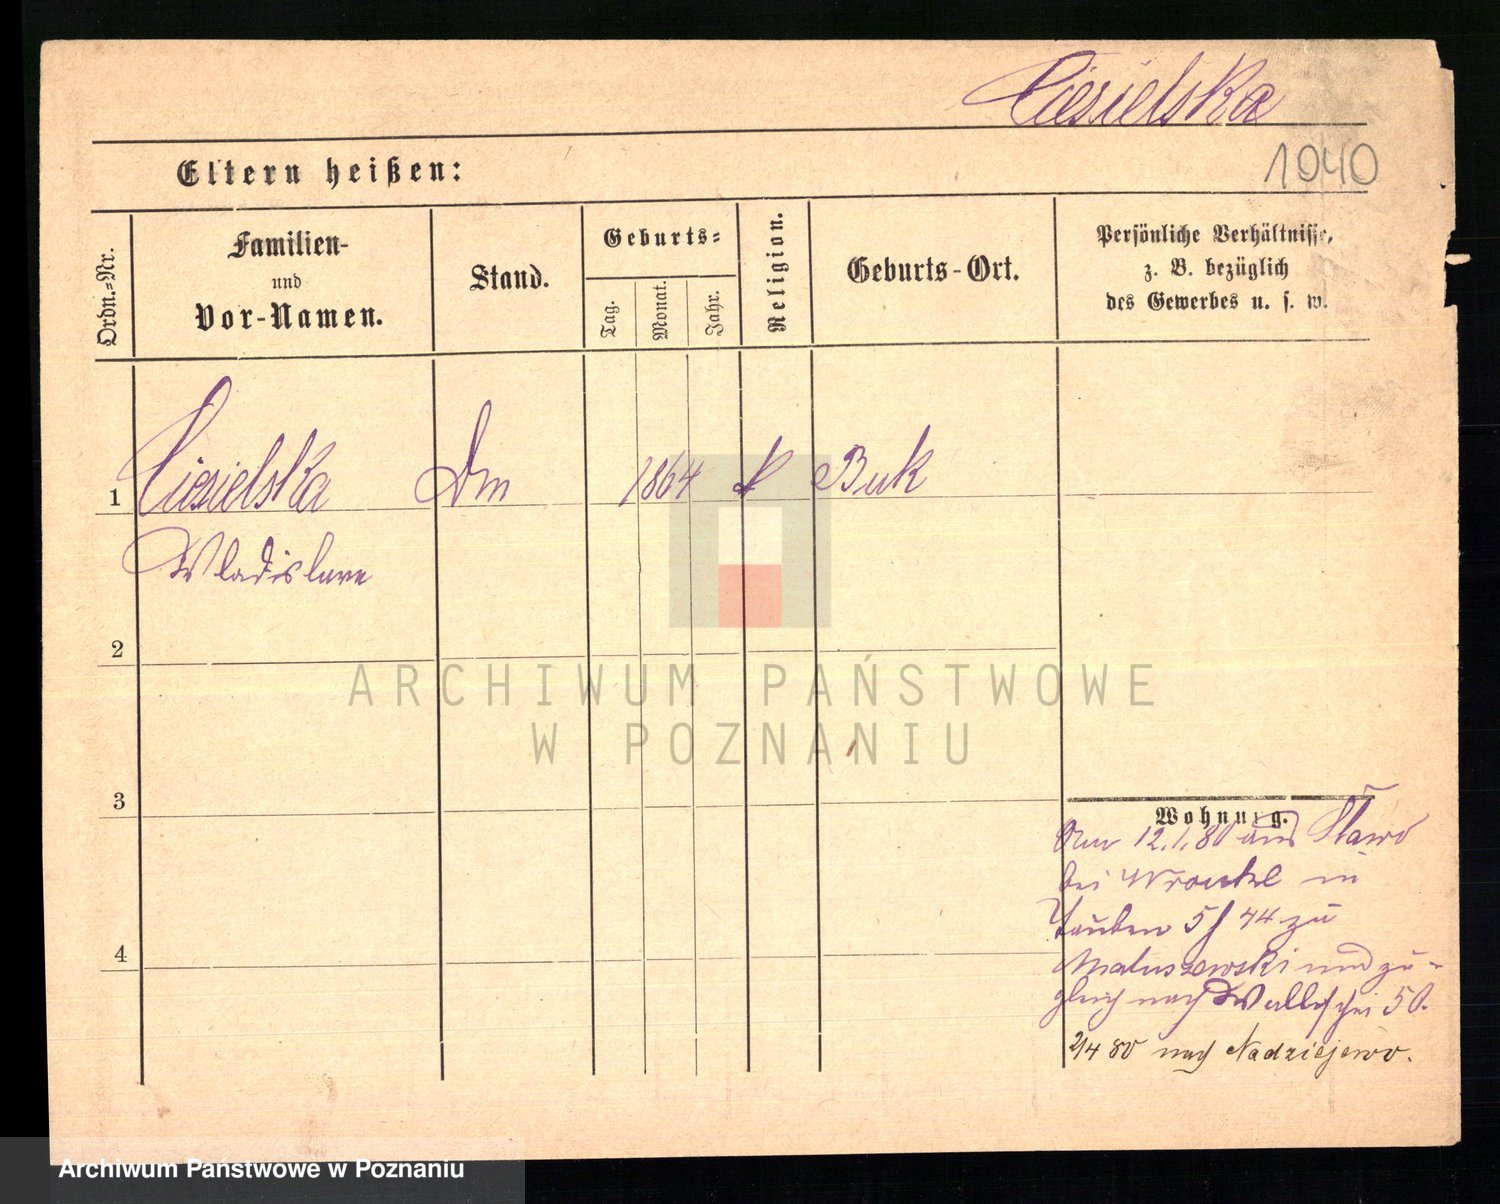 Ciesielska
1040
Eltern heißen:
Ordn.-Nr.
Familien-
und
Vor-Namen.
Stand.
Geburts-
Tag.
Monat.
Jahr.
Religion.
Geburts-Ort.
Persönliche Verhältnisse,
z. B. bezüglich
des Gewerbes u. s. w.
1 Ciesielska Dm 1864 k Buk
Wladislawa
2
3
4
Wohnung.
12.1.80 aus
bei Wronke in
Tauben 5 / 44 zu
Matuszewski und zu-
gleich nach Wallischei 50.
2/4 80 nach Nadziejewo.
ARCHIWUM PAŃSTWOWE
W POZNANIU
Archiwum Państwowe w Poznaniu